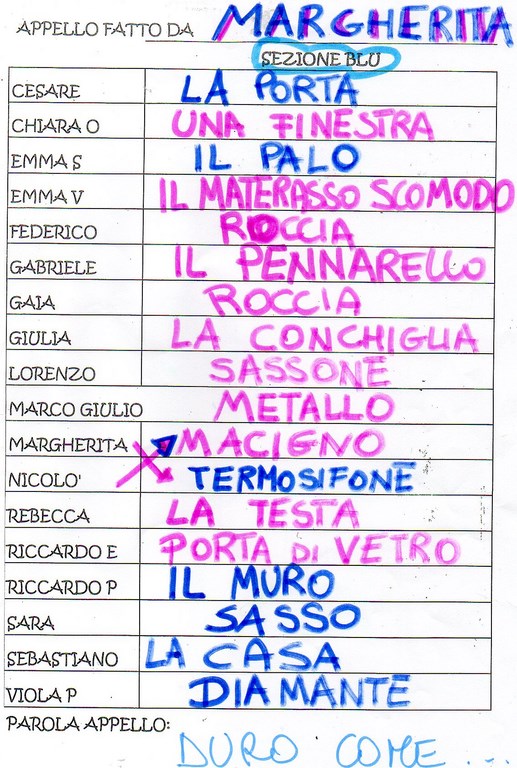 APPELLO FATTO DA MARGHERITA
SEZIONE BLU
CESARE LA PORTA
CHIARA O UNA FINESTRA
EMMA S IL PALO
EMMA V IL MATERASSO SCOMODO
FEDERICO ROCCIA
GABRIELE IL PENNARELLO
GAIA ROCCIA
GIULIA LA CONCHIGLIA
LORENZO SASSONE
MARCO GIULIO METALLO
MARGHERITA MACIGNO
NICOLO' TERMOSIFONE
REBECCA LA TESTA
RICCARDO E PORTA DI VETRO
RICCARDO P IL MURO
SARA SASSO
SEBASTIANO LA CASA
VIOLA P DIAMANTE
PAROLA APPELLO:
DURO COME ...